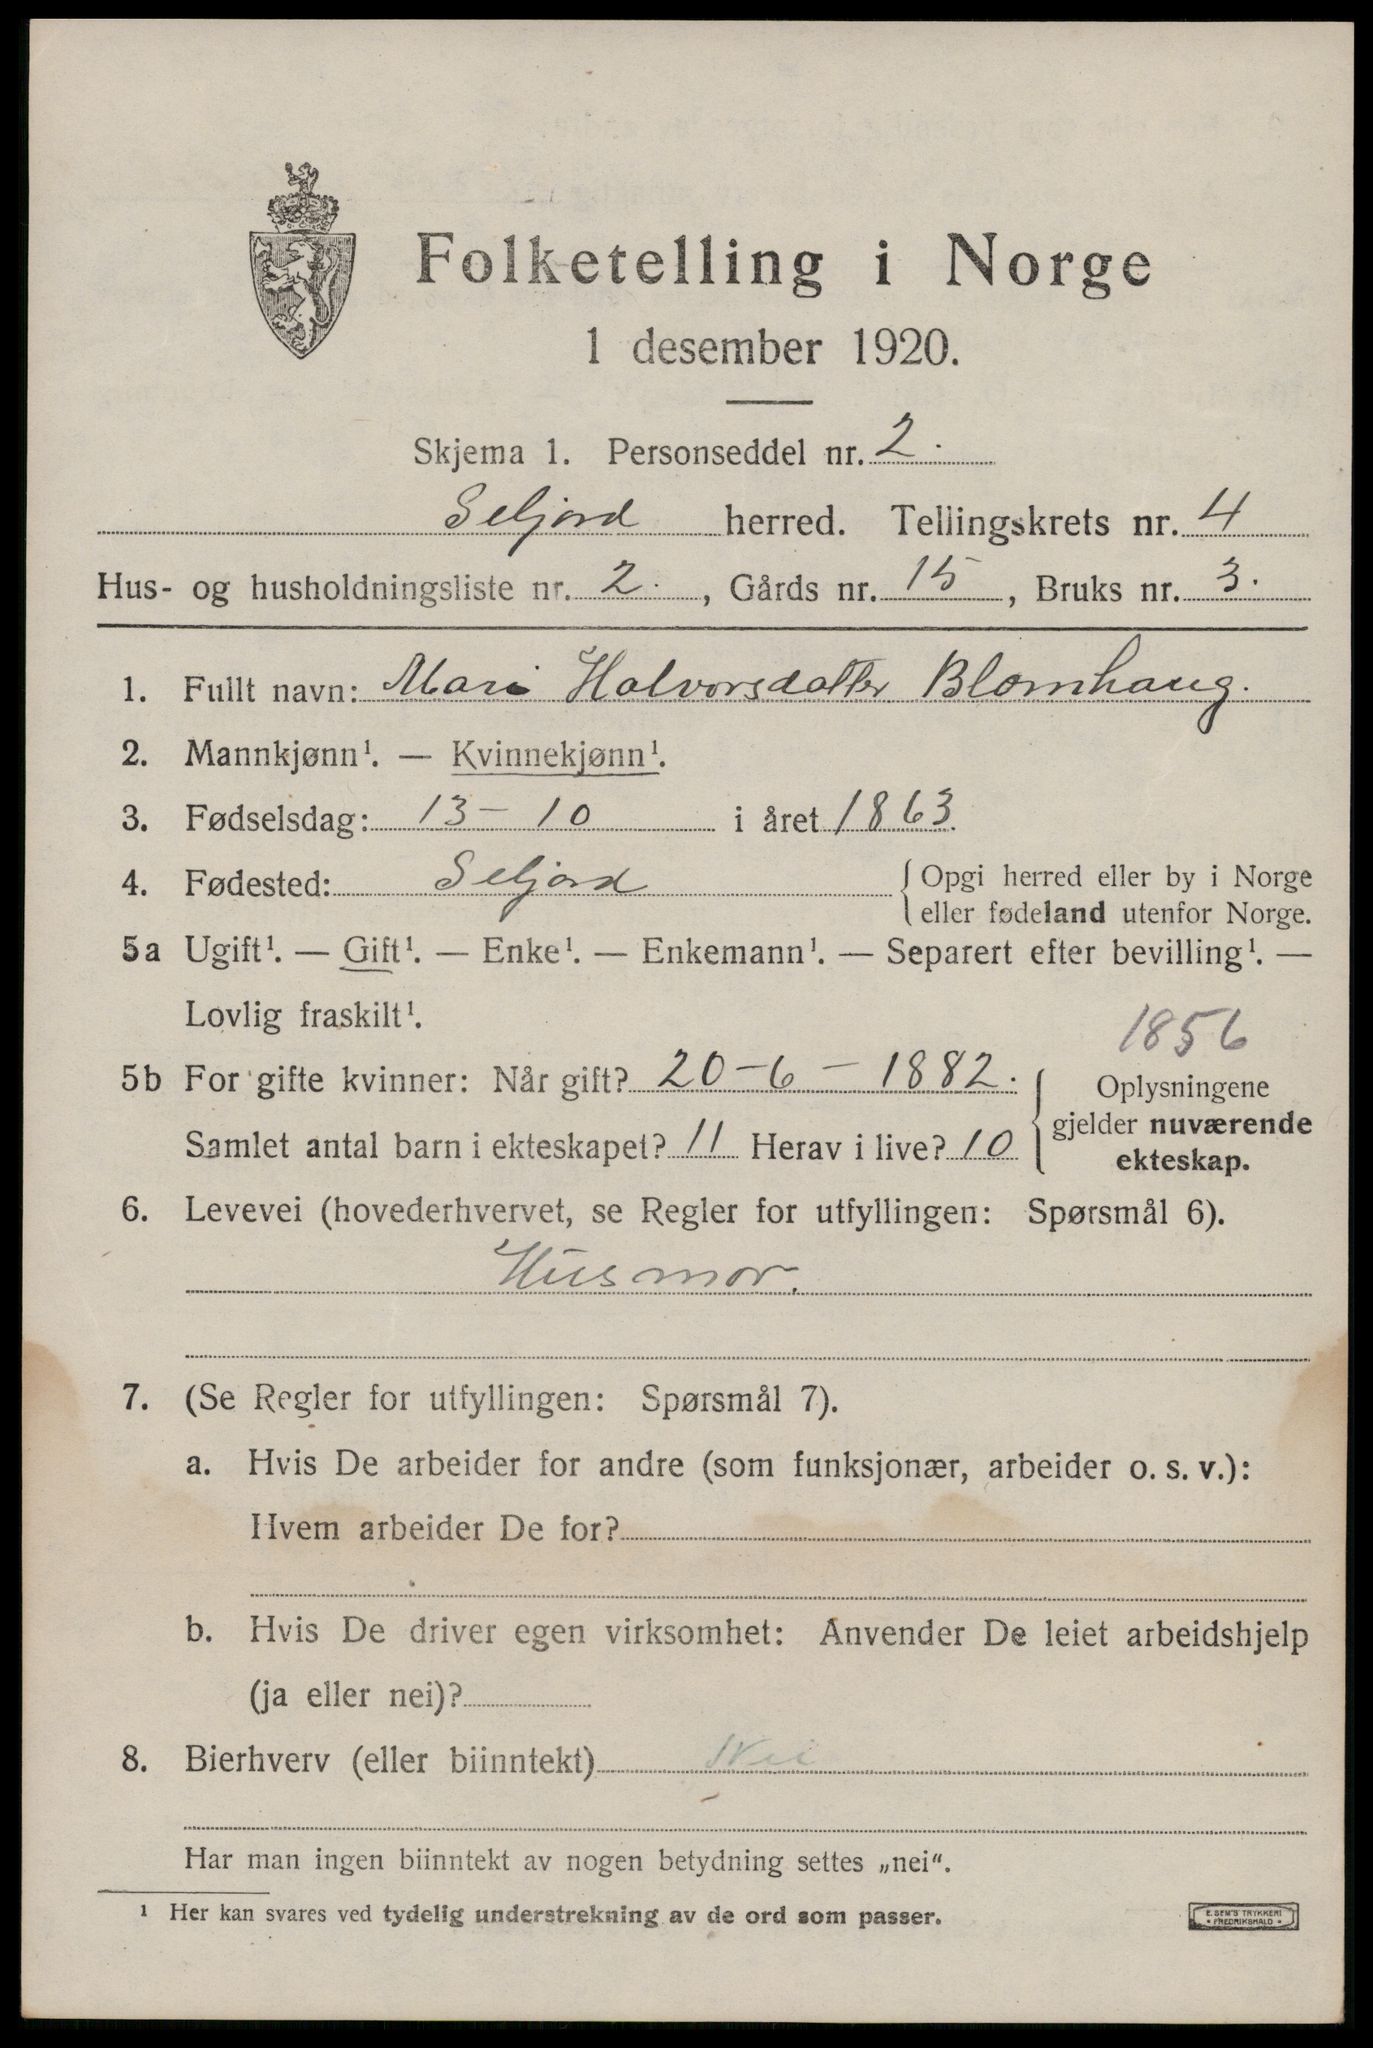 Folketelling i Norge
1 desember 1920.
Skjema 1. Personseddel nr. 2.
Seljord herred. Tellingskrets nr. 4
Hus- og husholdningsliste nr. 2., Gårds nr. 15, Bruks nr. 3.
1. Fullt navn: Mari Halvorsdatter Blomhaug.
2. Mannkjønn¹. — Kvinnekjønn¹.
3. Fødselsdag: 13 – 10 i året 1863.
4. Fødested: Seljord { Opgi herred eller by i Norge
eller fødeland utenfor Norge.
5a Ugift¹. — Gift¹. — Enke¹. — Enkemann¹. — Separert efter bevilling¹. —
Lovlig fraskilt¹.
1856
5b For gifte kvinner: Når gift? 20 – 6 – 1882.
Samlet antal barn i ekteskapet? 11 Herav i live? 10
{ Oplysningene
gjelder nuværende
ekteskap.
6. Levevei (hovederhvervet, se Regler for utfyllingen: Spørsmål 6).
Husmor.
7. (Se Regler for utfyllingen: Spørsmål 7).
a. Hvis De arbeider for andre (som funksjonær, arbeider o. s. v.):
Hvem arbeider De for?
b. Hvis De driver egen virksomhet: Anvender De leiet arbeidshjelp
(ja eller nei)?
8. Bierhverv (eller biinntekt) Nei
Har man ingen biinntekt av nogen betydning settes „nei“.
¹ Her kan svares ved tydelig understrekning av de ord som passer.
E. SEM'S TRYKKERI
• FREDRIKSHALD •